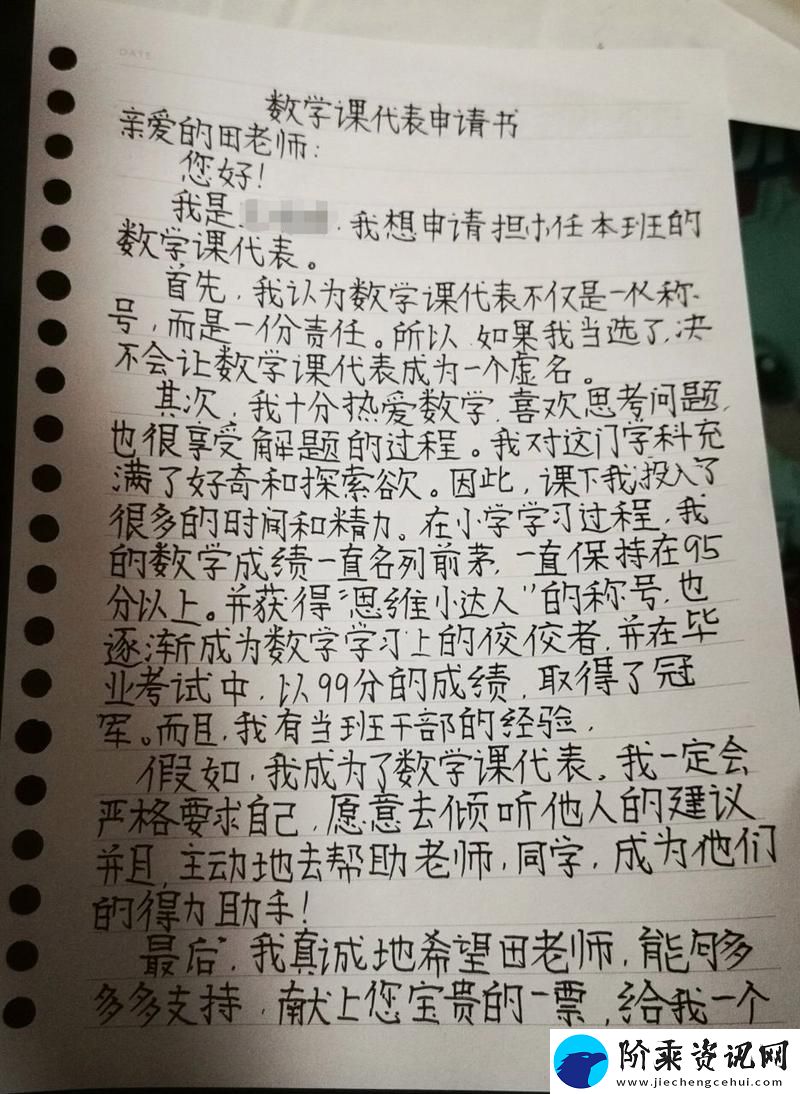 DATE
数学课代表申请书
亲爱的田老师:
您好!
我是 我想申请担任本班的
数学课代表。
首先,我认为数学课代表不仅是一份称
号,而是一份责任。所以如果我当选了,决
不会让数学课代表成为一个虚名。
其次,我十分热爱数学,喜欢思考问题,
也很享受解题的过程。我对这门学科充
满了好奇和探索欲。因此,课下我投入了
很多的时间和精力。在小学学习过程,我
的数学成绩一直名列前茅,一直保持在95
分以上。并获得“思维小达人”的称号,也
逐渐成为数学学习上的佼佼者,并在毕
业考试中,以99分的成绩,取得了冠
军。而且,我有当班干部的经验,
假如,我成为了数学课代表。我一定会
严格要求自己,愿意去倾听他人的建议
并且,主动地去帮助老师,同学,成为他们
的得力助手!
最后,我真诚地希望田老师,能够多
多多支持,献上您宝贵的一票,给我一个
阶乘资讯网
www.jiechengcehui.com